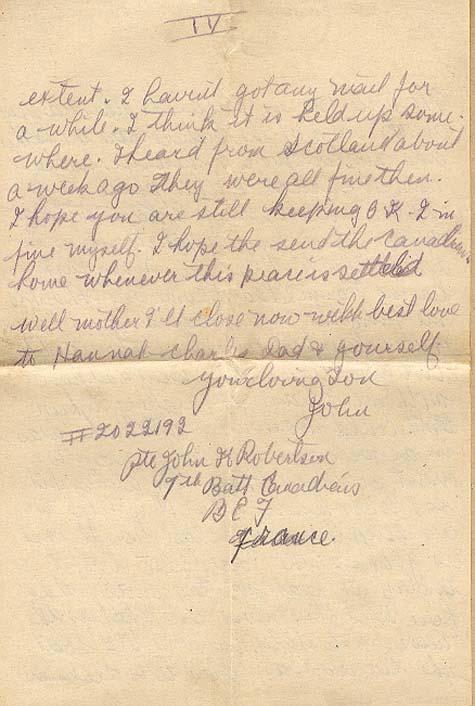 IV
extent. I havn't got any mail for
a while. I think it is held up some-
where. I heard from Scotland about
a week ago they were all fine then.
I hope you are still keeping O K. I in
fine myself. I hope the send the Canadians
home whenever this peace is settled
Well mother I'll close now with best love
to Hannah Charlie Dad & yourself.
Your loving Son
John
#2022192
Pte John H Robertson
7th Batt Canadians
B E F
France.